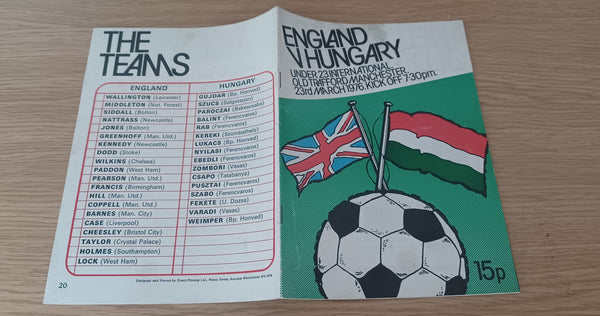 THE
TEAMS
ENGLAND
WALLINGTON (Leicester)
MIDDLETON (Not. Forest)
SIDDALL (Bolton)
NATTRASS (Newcastle)
JONES (Bolton)
GREENHOFF (Man. Utd.)
KENNEDY (Newcastle)
DODD (Stoke)
WILKINS (Chelsea)
PADDON (West Ham)
PEARSON (Man. Utd.)
FRANCIS (Birmingham)
HILL (Man. Utd.)
COPPELL (Man. Utd.)
BARNES (Man. City)
CASE (Liverpool)
CHEESLEY (Bristol City)
TAYLOR (Crystal Palace)
HOLMES (Southampton)
LOCK (West Ham)
HUNGARY
GUJDAR (Bp. Honved)
SZUCS (Salgotarjan)
PAROCZAI (Bekescsaba)
BALINT (Ferencvaros)
RAB (Ferencvaros)
KEREKI (Szombathely)
LUKACS (Bp. Honved)
NYILASI (Ferencvaros)
EBEDLI (Ferencvaros)
ZOMBORI (Vasas)
CSAPO (Tatabanya)
PUSZTAI (Ferencvaros)
SZABO (Ferencvaros)
FEKETE (U. Dozsa)
VARADI (Vasas)
WEIMPER (Bp. Honved)
20
ENGLAND
V HUNGARY
UNDER 23 INTERNATIONAL
OLD TRAFFORD MANCHESTER
23rd MARCH 1976. KICK OFF 7.30pm.
15p